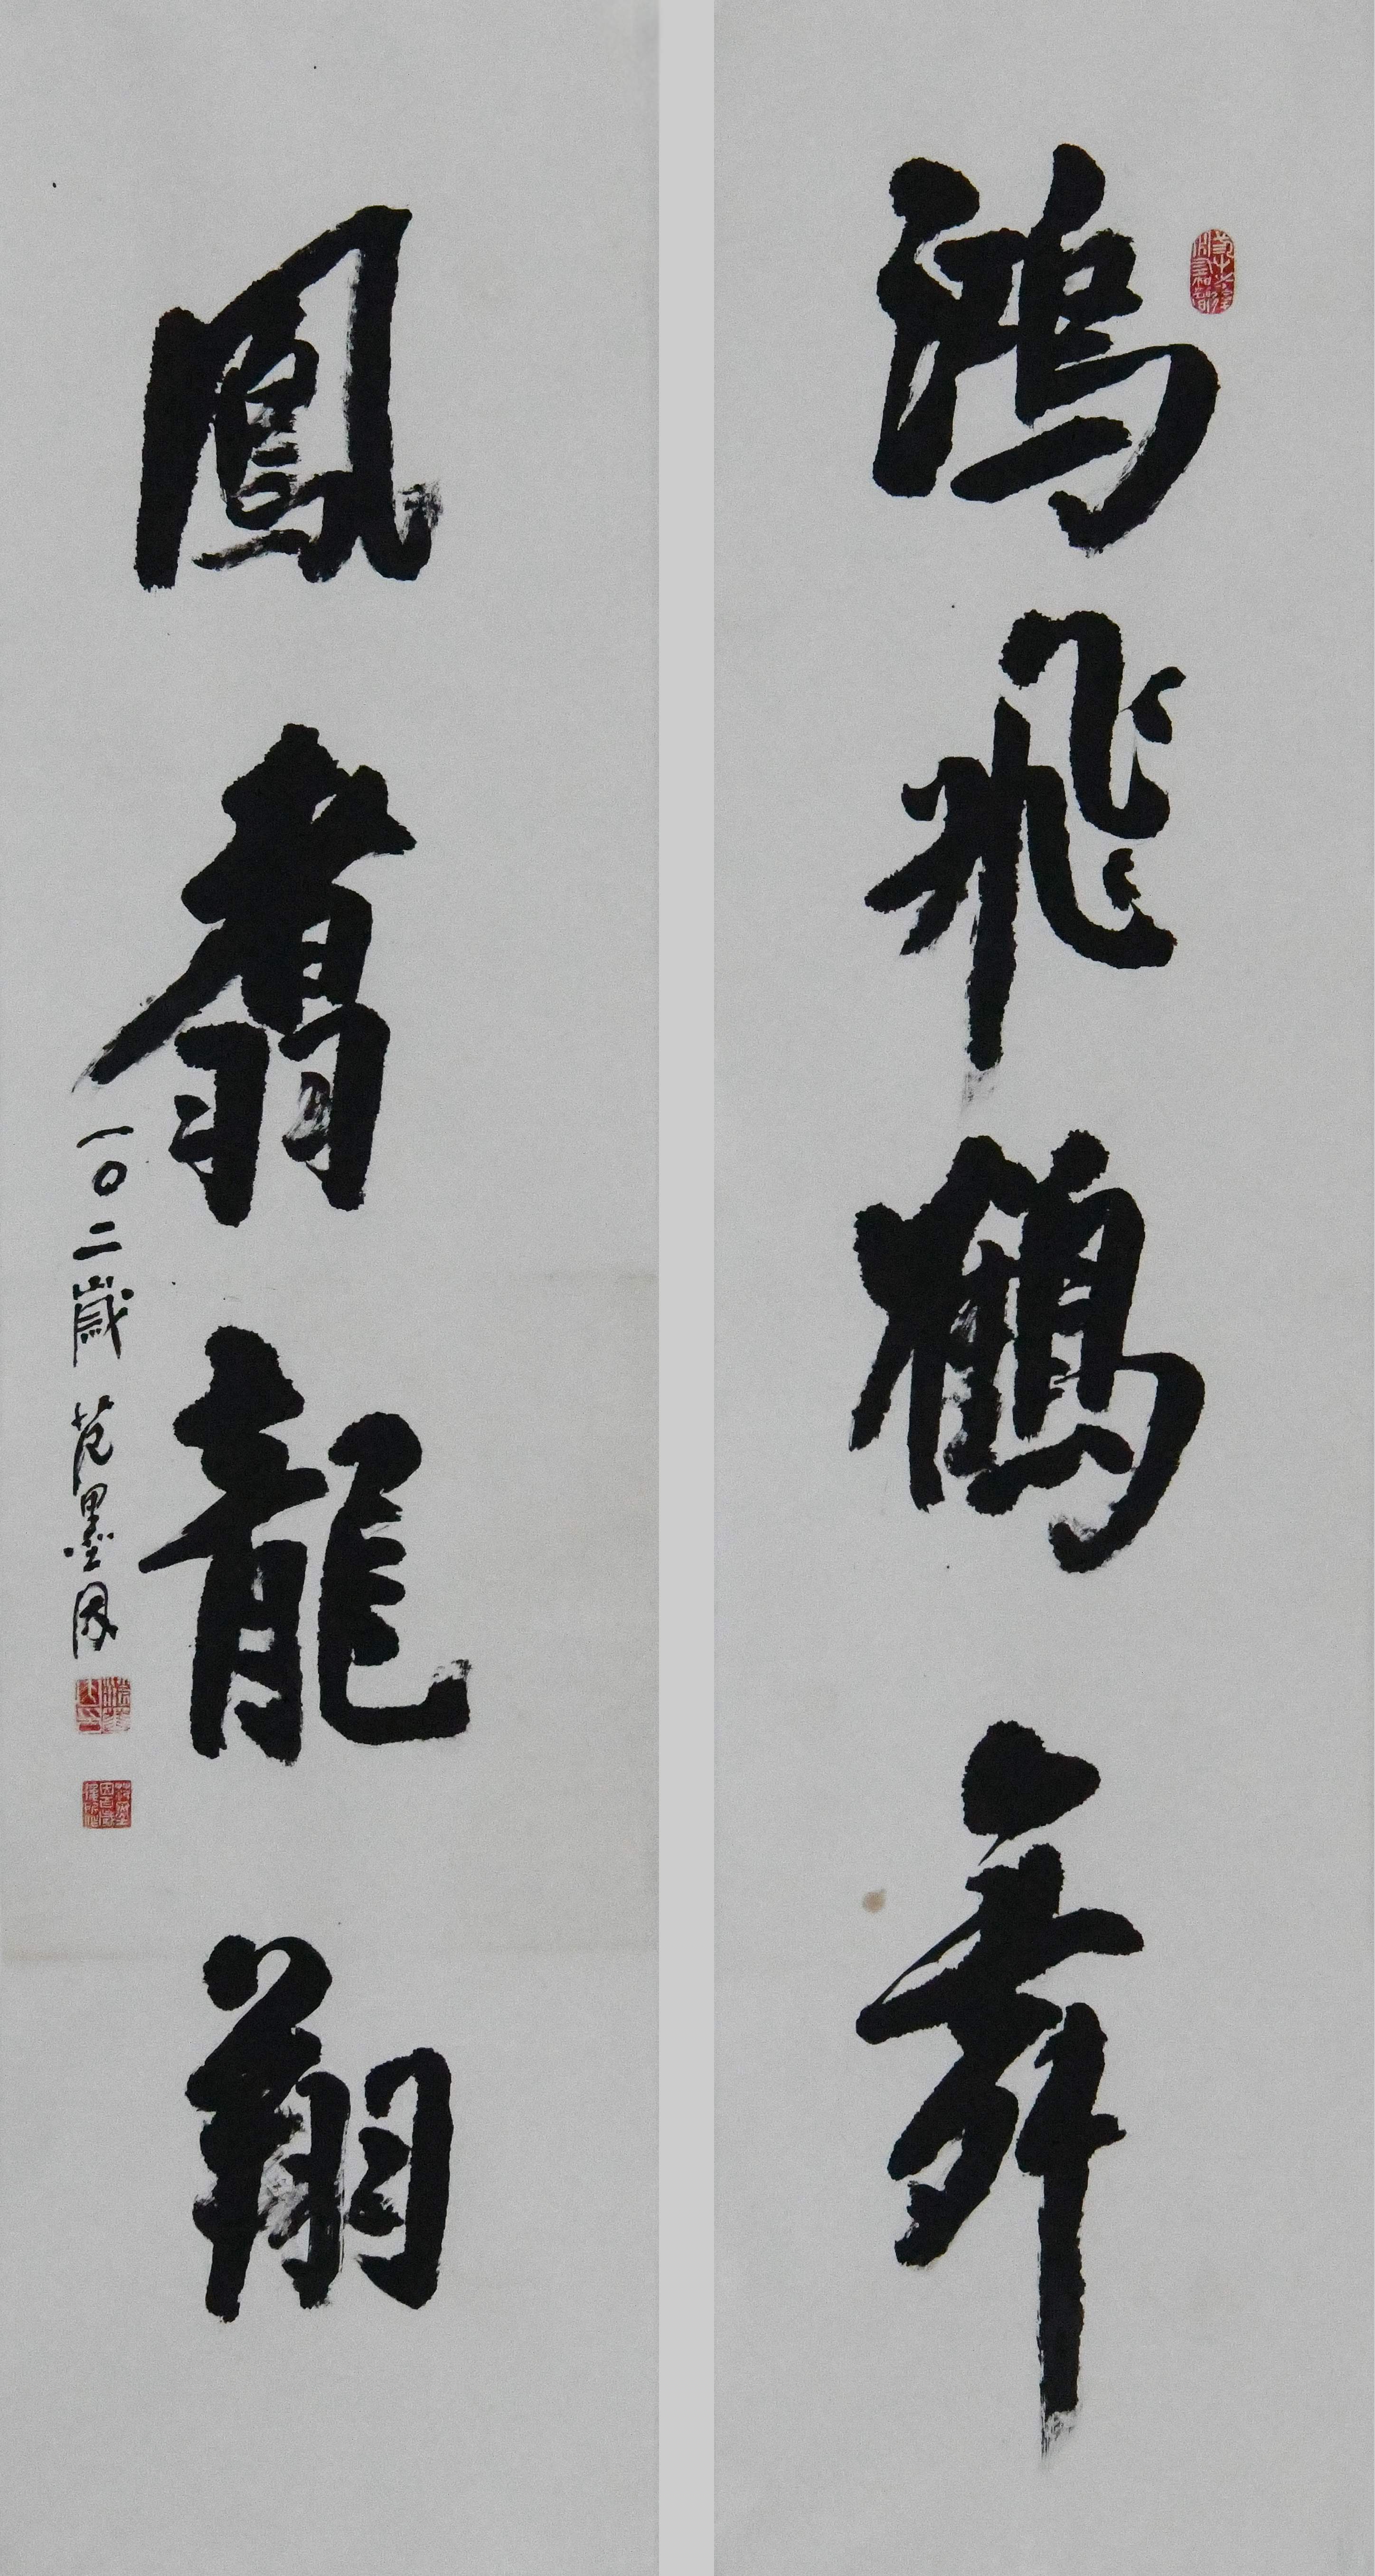 鴻飛鶴舞
鳳翥龍翔
一〇二歲 范墨因